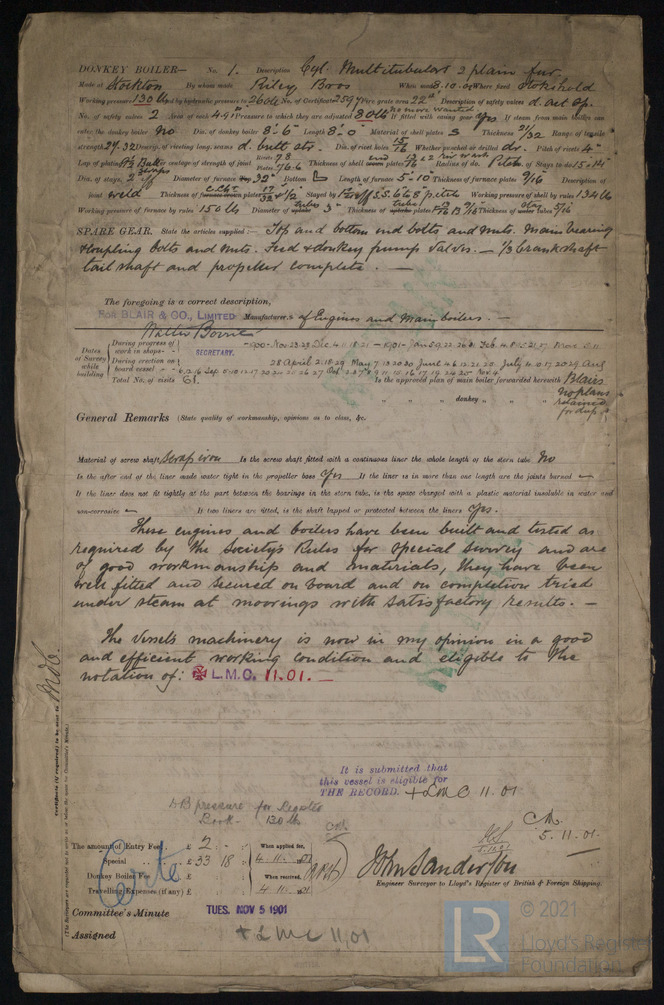 DONKEY BOILER— No. 1. Description Cyl. Multitubular 2 plain fur.
Made at Stockton By whom made Riley Bros When made 8.10.01 Where fixed Stokehold
Working pressure 130 lbs tested by hydraulic pressure to 260 lbs No. of Certificate 2597 Fire grate area 22 Description of safety valves d. act sp.
No. of safety valves 2 Area of each 4.91 Pressure to which they are adjusted 80 lbs If fitted with easing gear Yes If steam from main boilers can
enter the donkey boiler No Dia. of donkey boiler 8'-6" Length 8'-0" Material of shell plates S Thickness 21/32 Range of tensile
strength 27.32 Descrip. of riveting long. seams d. butt str. Dia. of rivet holes 15/16 Whether punched or drilled dr. Pitch of rivets 4"
Lap of plating Per centage of strength of joint Rivets 78 Plates 76.6 Thickness of shell end plates Radius of do. Pitch of Stays to do 15×14
Dia. of stays. Diameter of furnace 32" Bottom Length of furnace 5'-10" Thickness of furnace plates 9/16 Description of
joint weld Thickness of Stayed by Working pressure of shell by rules 134 lb
Working pressure of furnace by rules 150 lb Diameter of tubes 3" Thickness of tubes 5/16
SPARE GEAR. State the articles supplied:— Top and bottom end bolts and nuts. Main bearing
& coupling bolts and nuts. Feed & donkey pump valves. — 1/3 crankshaft
tail shaft and propeller complete. —
The foregoing is a correct description,
FOR BLAIR & CO., LIMITED Manufacturers of Engines and Main boilers. —
SECRETARY.
Dates of Survey while building
During progress of work in shops - -
During erection on board vessel - - -
Total No. of visits 61.
Is the approved plan of main boiler forwarded herewith Blairs
" " " donkey " " " no plans
retained
for dup.
General Remarks (State quality of workmanship, opinions as to class, &c.
Material of screw shaft Scrap iron Is the screw shaft fitted with a continuous liner the whole length of the stern tube No
Is the after end of the liner made water tight in the propeller boss Yes If the liner is in more than one length are the joints burned —
If the liner does not fit tightly at the part between the bearings in the stern tube, is the space charged with a plastic material insoluble in water and
non-corrosive — If two liners are fitted, is the shaft lapped or protected between the liners Yes.
These engines and boilers have been built and tested as
required by the Society's Rules for Special Survey and are
of good workmanship and materials, they have been
well fitted and secured on board and on completion tried
under steam at moorings with satisfactory results. —
The Vessels machinery is now in my opinion in a good
and efficient working condition and eligible to the
notation of: ✠ L.M.C. 11.01. —
It is submitted that
this vessel is eligible for
THE RECORD. + LMC 11.01
DB pressure for Register
Book - 130 lb
5.11.01.
The amount of Entry Fee . . £ 2 " - :
Special . . . . £ 33 : 18 :
Donkey Boiler Fee . . . £ : :
Travelling Expenses (if any) £ : :
When applied for,
4.11.01
When received,
4.11.01
Certe
John Sanderson
Engineer Surveyor to Lloyd's Register of British & Foreign Shipping.
Committee's Minute TUES. NOV 5 1901
Assigned + LMC 11,01
Certificate (if required) to be sent to
(The Surveyors are requested not to write on or below the space for Committee's Minute.)
LR
© 2021
Lloyd's Register
Foundation